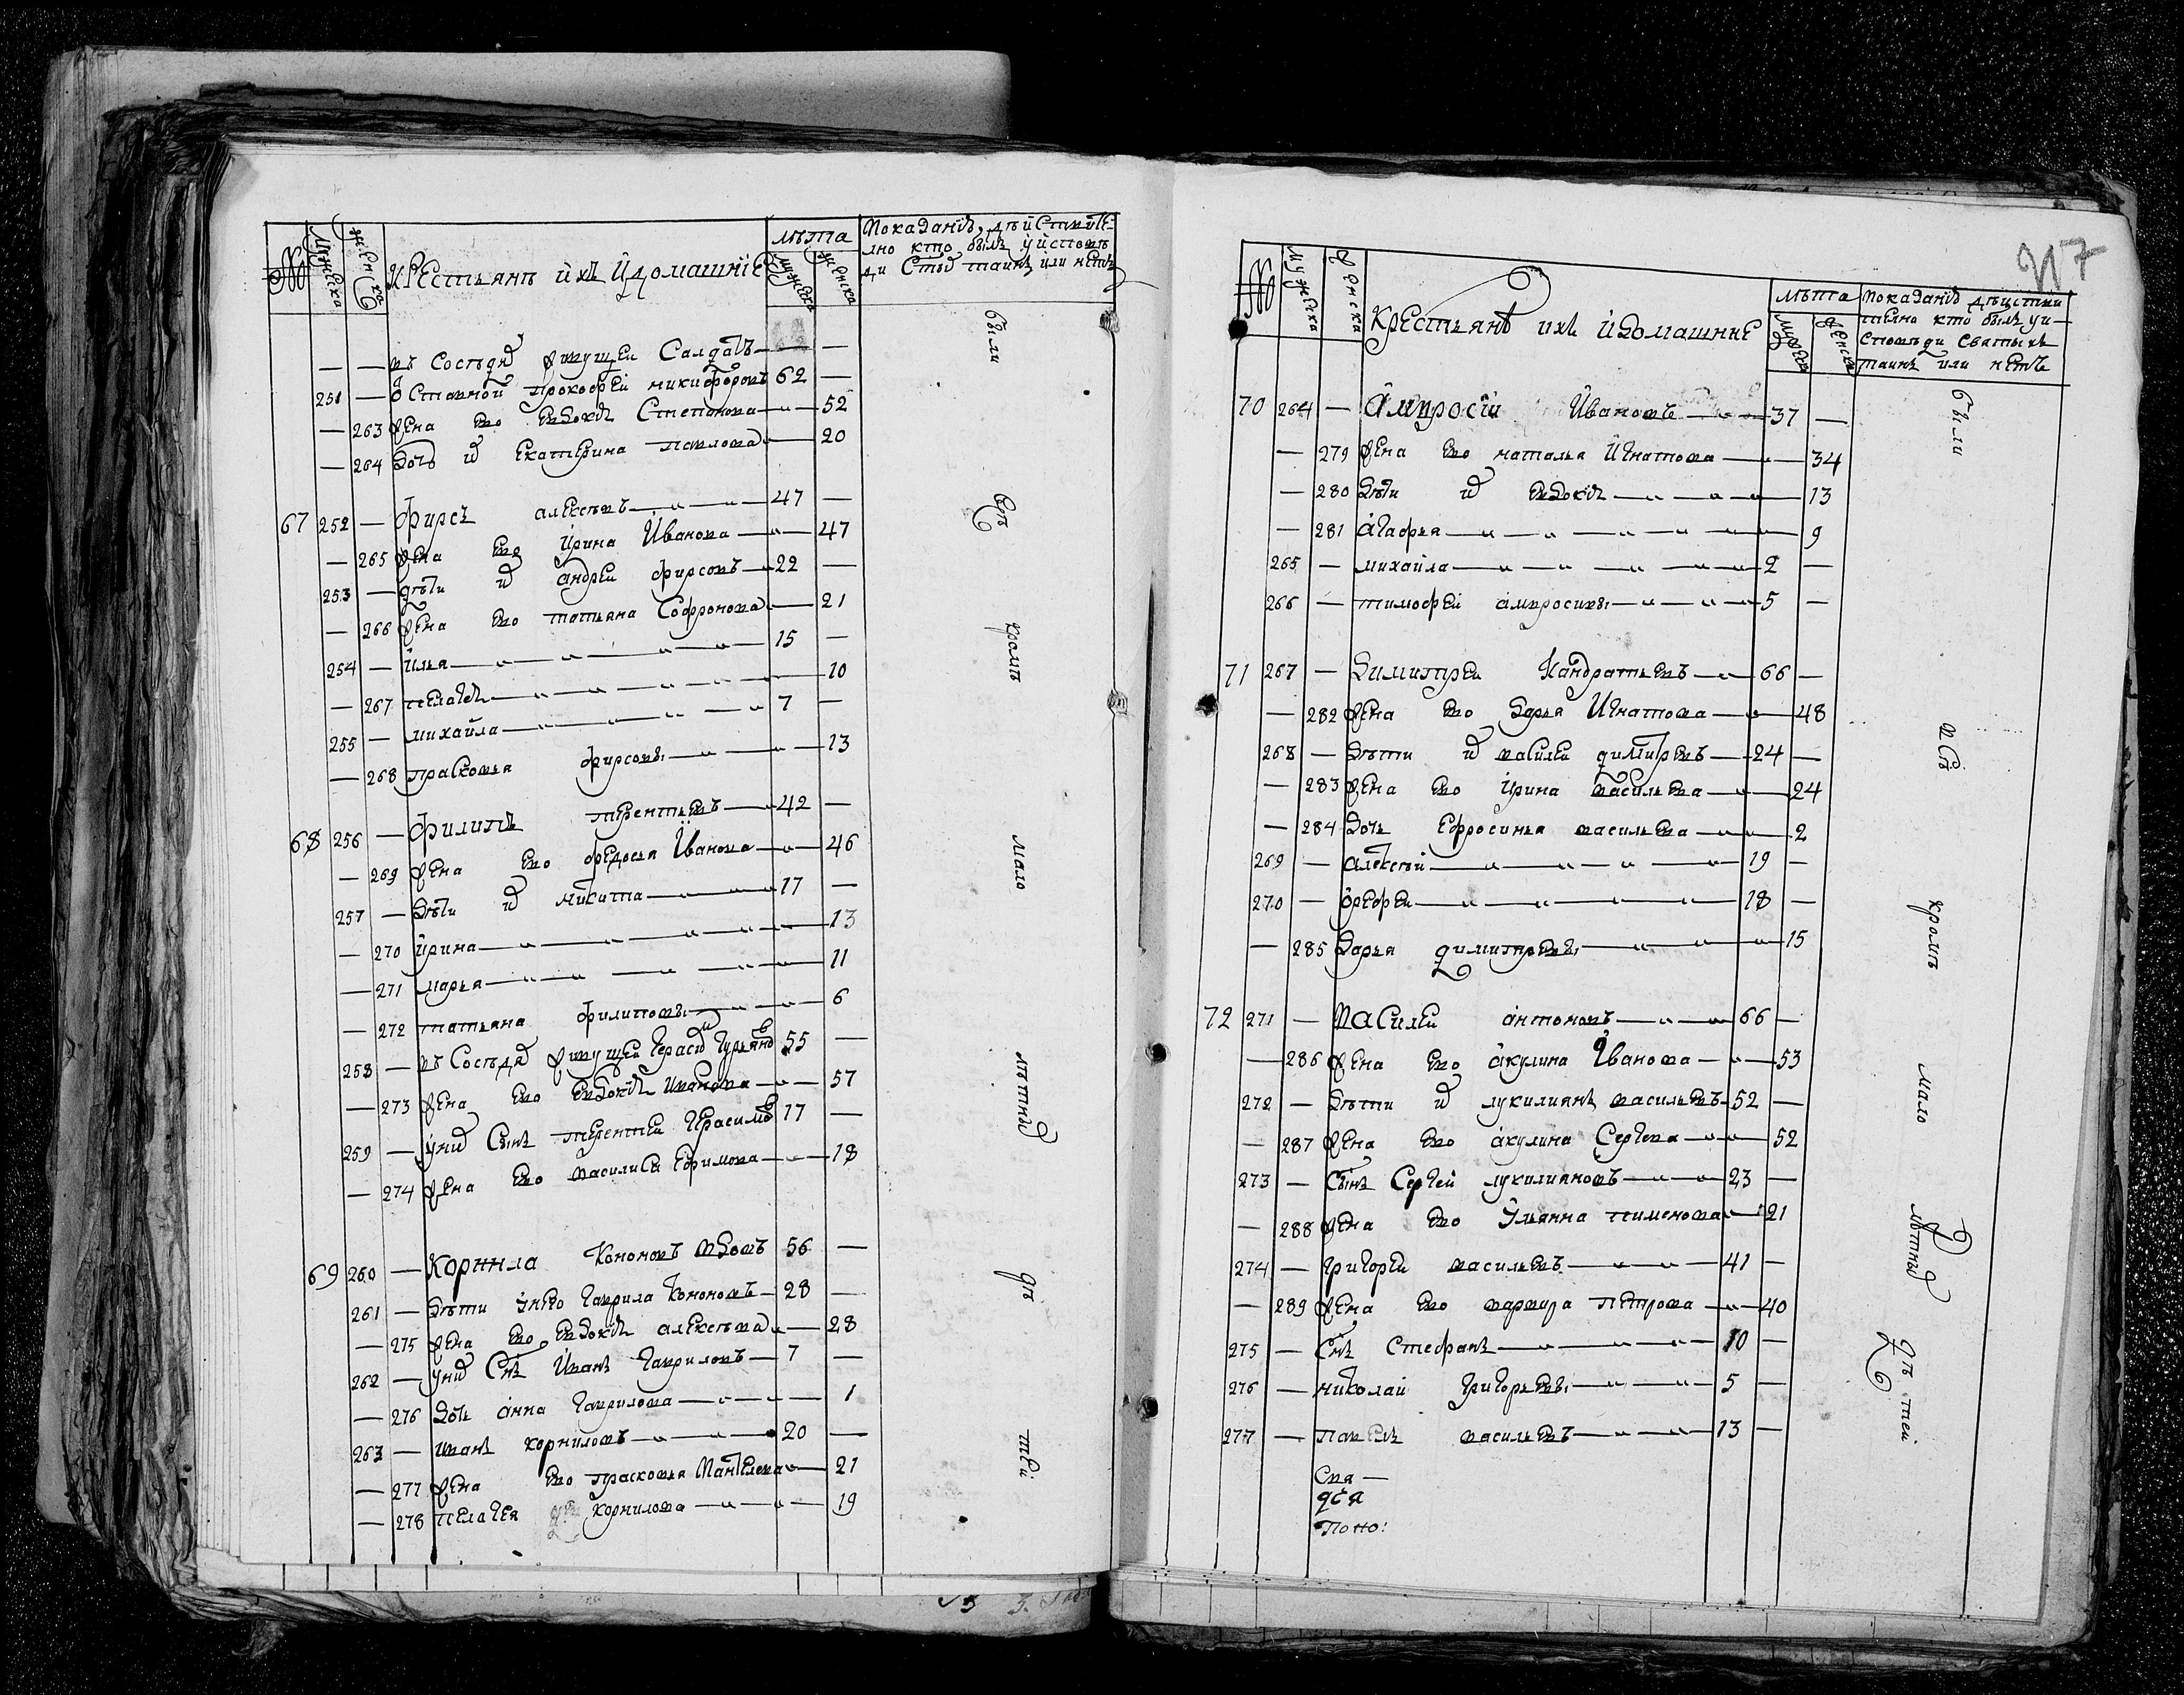 № мужеска женска Крестьянѣ ихъ и домашнiе лѣта мужеска женска Показанiе, дѣйствите-
лно кто былъ у испове
ди с тѣхъ таинъ или нетъ
— — въ Соседяхъ живущеи Салдатъ — —
251 — Ставной Прокофеи никифоровъ 62 —
— 263 жена ево Евдокiя Степанова — 52
— 264 Дочь их Екатерина павлова — 20
67 252 — Фирсъ алексѣевъ — 47 —
— 265 жена ево ирина Иванова — 47
253 — дѣти их андреи фирсовъ — 22 —
— 266 жена ево татьяна Софронова — 21
254 — илья — 15 —
— 267 пелагея — 10
255 — михайла — 7 —
— 268 прасковья фирсовы — 13
68 256 — Филипъ терентьевъ — 42 —
— 269 жена ево федосья Иванова — 46
257 — Дѣти их никита — 17 —
— 270 ирина — 13
— 271 марья — 11
— 272 татьяна филиповы — 6
258 — въ Соседяхъ живущеи Герасим Гурьянов 55 —
— 273 жена ево Евдокiя Иванова — 57
259 — у них Сынъ терентеи Герасимов 17 —
— 274 жена ево василиса Ефимова — 18
69 260 — Корнила Кононовъ вдовъ 56 —
261 — Дѣти у него Гаврила Кононовъ — 28 —
— 275 жена ево Евдокiя алексѣева — 28
262 — у них Снъ Иванъ Гавриловъ — 7 —
— 276 Дочь анна Гаврилова — 1
263 — иванъ корниловъ — 20 —
— 277 жена ево прасковья Пантелеева — 21
— 278 пелагея корнилова — 19
были
всѣ
кромѣ
мало
лѣтных
дѣ
теи
№ мужеска женска Крестьянѣ ихъ и домашние лѣта мужеска женска показанiе дѣистви
телно кто былъ у и
споведи святыхъ
таинъ или нетъ
70 264 — Амвросiй Ивановъ — 37 —
— 279 жена ево наталья Игнатова — 34
— 280 Дѣти их Евдокiя — 13
— 281 агафья — 9
265 — михайла — 2 —
266 — тимофеи амвросивы — 5 —
71 267 — Димитреи Кандратьевъ — 66 —
— 282 жена ево Дарья Игнатова — 48
268 — Дѣти их василеи димитревъ — 24 —
— 283 жена ево ирина васильева — 24
— 284 Дочь Ефросинья васильева — 2
269 — алексѣй — 19 —
270 — орефеи — 18 —
— 285 Дарья димитревы — 15
72 271 — Василеи антоновъ — 66 —
— 286 жена ево акулина Иванова — 53
272 — Дѣти их лукилиянъ васильевъ — 52 —
— 287 жена ево акулина Сергева — 52
273 — Сынъ Сергеи лукилияновъ — 23 —
— 288 жена ево Ульянна пименова — 21
274 — григореи васильевъ — 41 —
— 289 жена ево варвара Петрова — 40
275 — Снъ Стефанъ — 10 —
276 — николаи григорьевы — 5 —
277 — Павелъ васильевъ — 13 —
Свя —
Попо:
были
всѣ
кромѣ
мало
лѣтных
дѣ теи